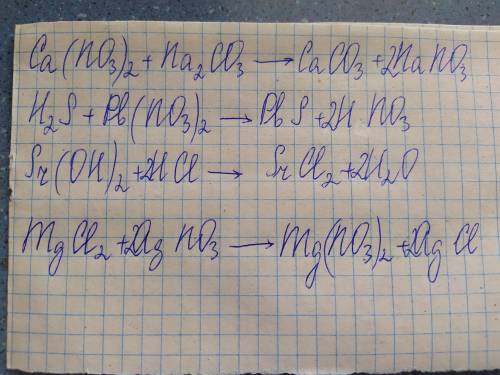 Ca(NO3)2 + Na2CO3 → CaCO3 + 2NaNO3
H2S + Pb(NO3)2 → PbS + 2HNO3
Sr(OH)2 + 2HCl → SrCl2 + 2H2O
MgCl2 + 2AgNO3 → Mg(NO3)2 + 2AgCl